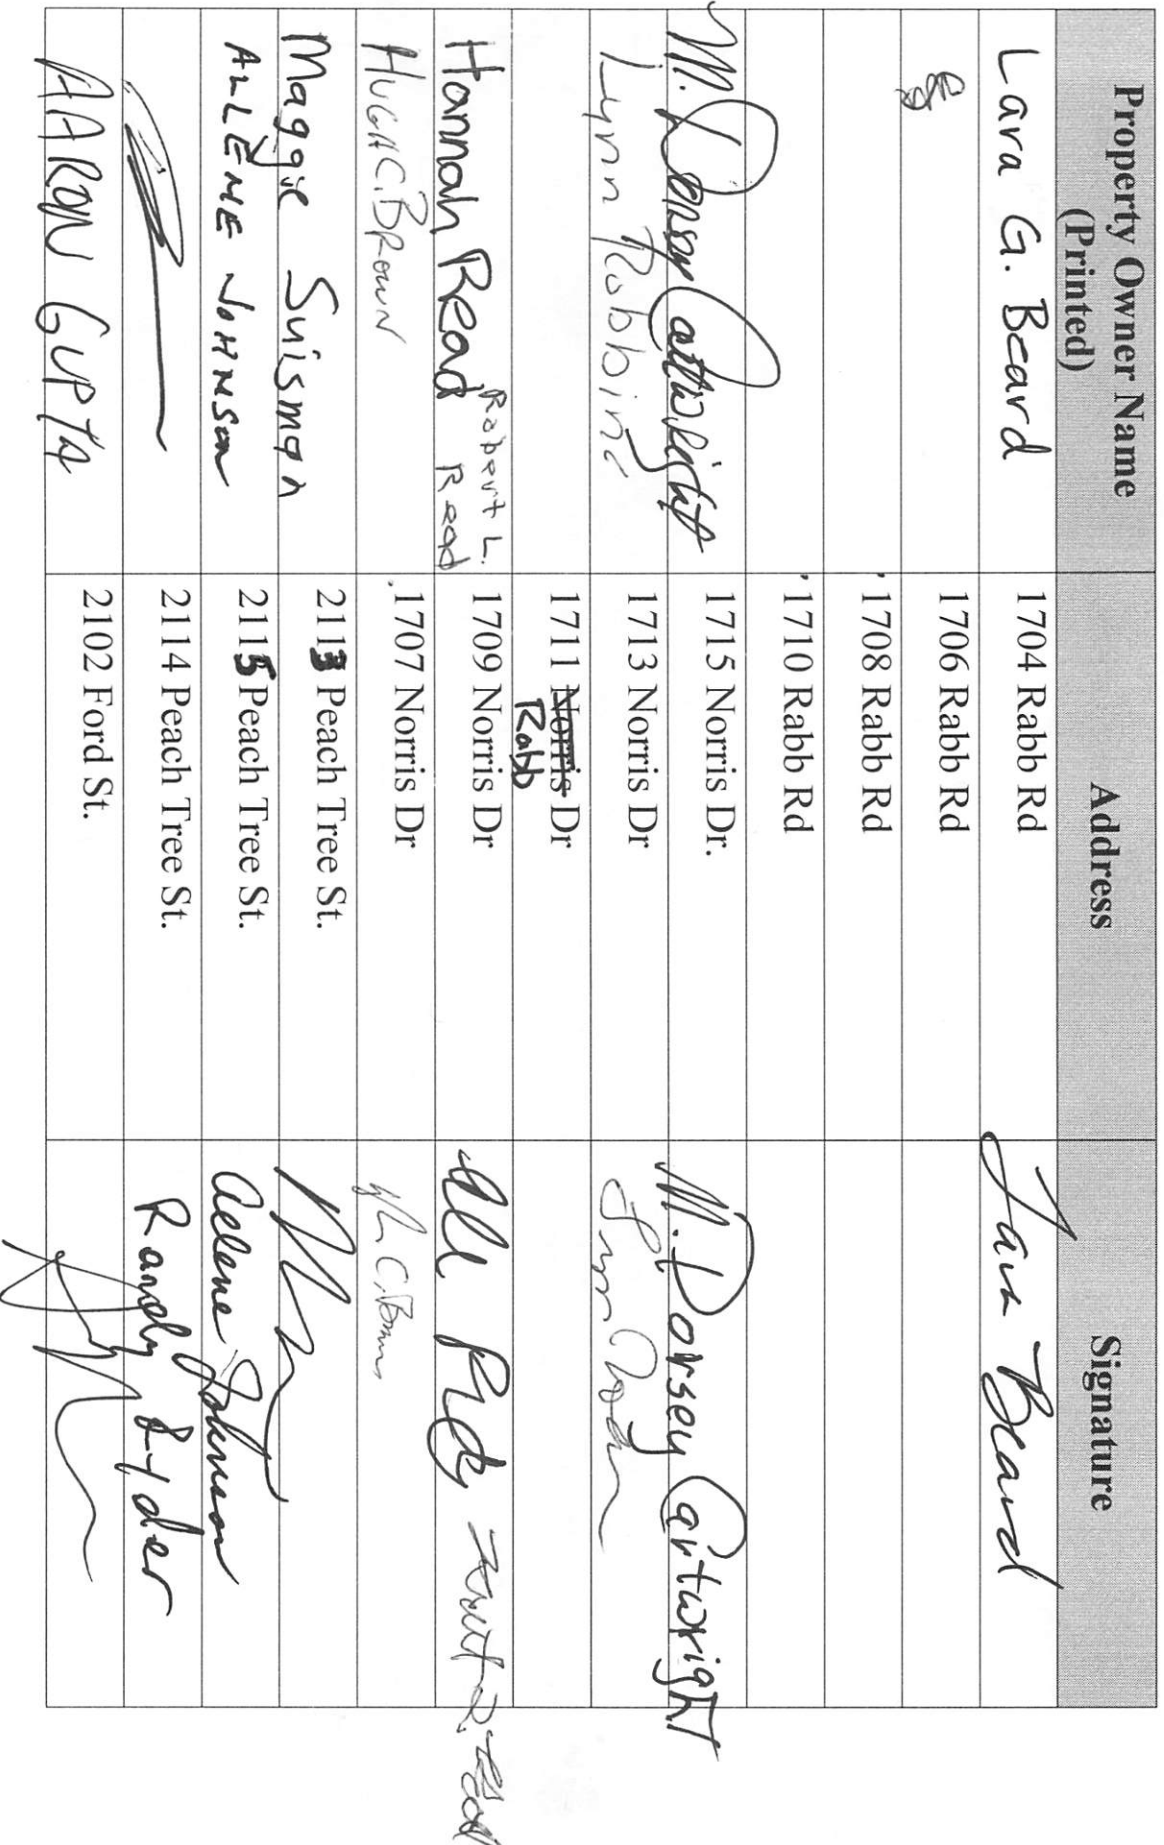 Property Owner Name (Printed) Address Signature
Lara G. Beard 1704 Rabb Rd Lara Beard
1706 Rabb Rd
1708 Rabb Rd
1710 Rabb Rd
M. Dorsey Cartwright 1715 Norris Dr. M. Dorsey Cartwright
Lynn Robbins 1713 Norris Dr
1711 Norris Dr
Rabb
Robert L.
Hannah Read Read 1709 Norris Dr
HUGH C. BROWN 1707 Norris Dr
Maggie Suisman 2113 Peach Tree St.
ALLENE JOHNSON 2115 Peach Tree St. Allene Johnson
2114 Peach Tree St. Randy Ryder
AARON GUPTA 2102 Ford St.